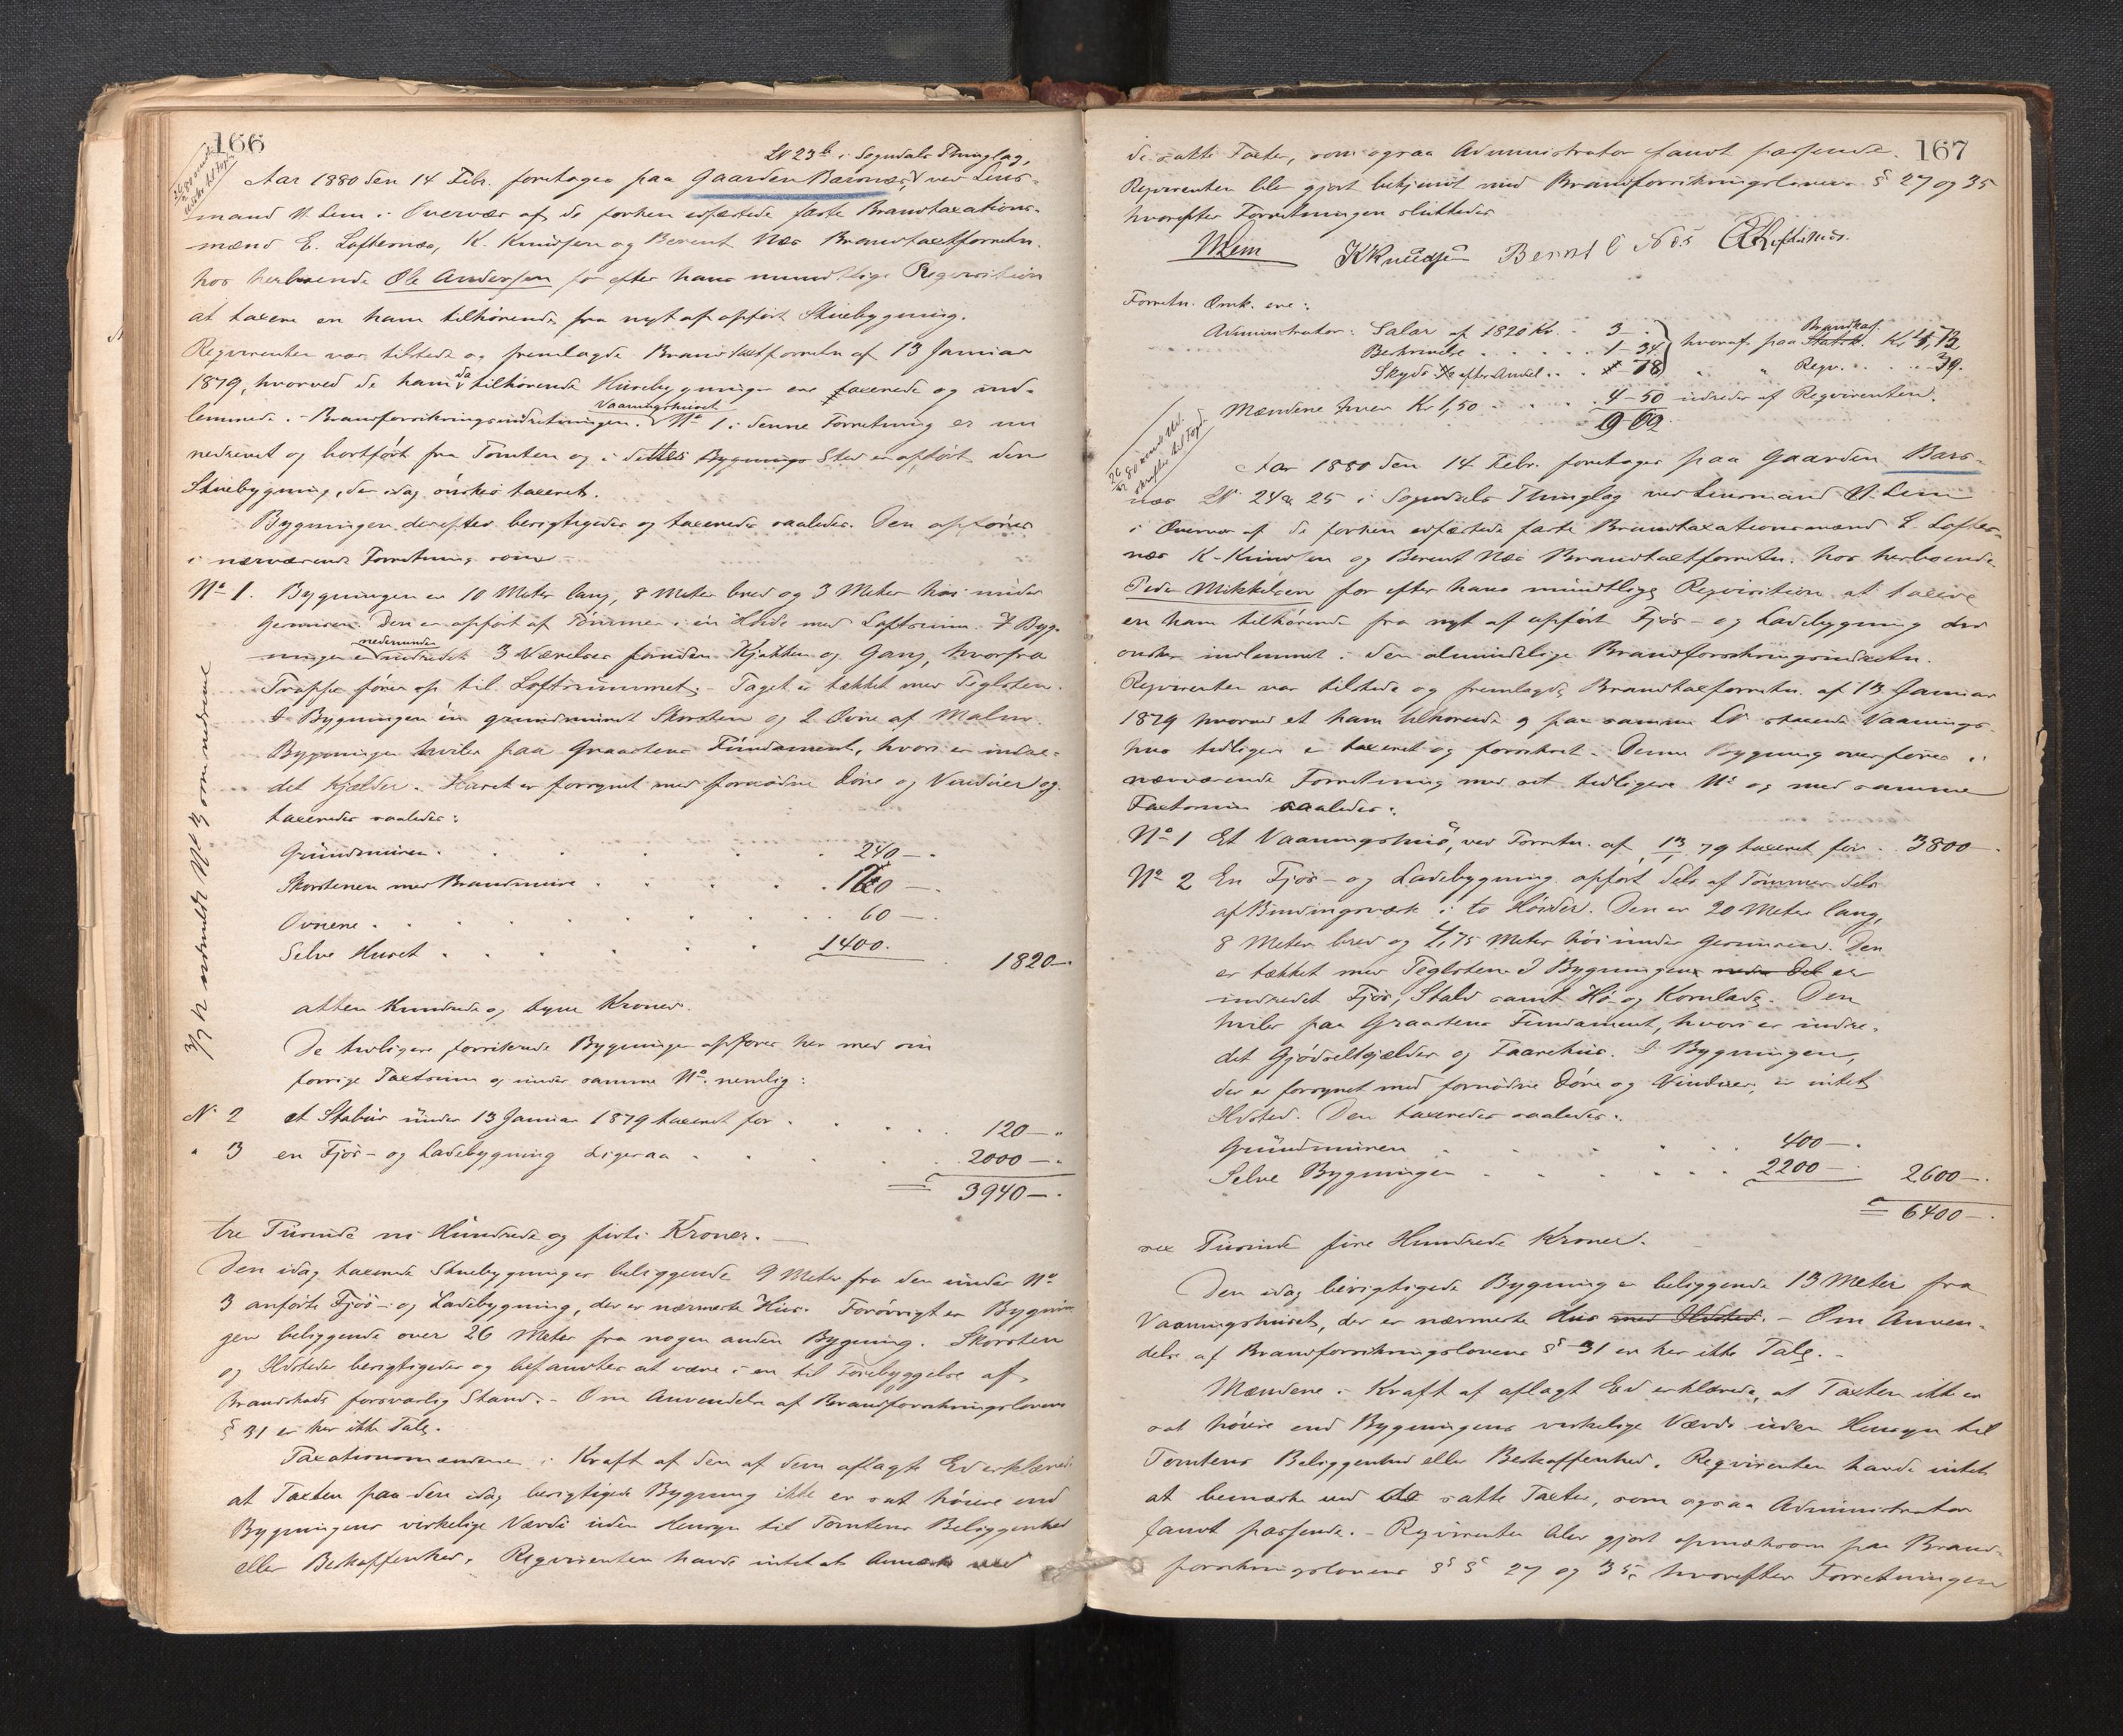 166
20/2 80 meddelt
Afskr. til Toge
LN 23b i Sogndals Thinglag,
Aar 1880 den 14 Febr. foretoges paa Gaarden Barsnæs, ved Lens-
mand N. Lem i Overvær af de forhen edfæstede faste Brandtaxations-
mænd E. Loftesnæs, K. Knudsen og Berent Næs Brandtaxtforretn.
hos herboende Ole Andersen for efter hans mundtlige Reqvisition
at taxere en ham tilhörende fra nyt af opfört Stuebygning.
Reqvirenten var tilstede og fremlagde Brandtaxtforretn af 13 Januar
1879, hvorved de ham da tilhörende Husebygninger ere taxerede og ind-
lemmede i Brandforsikringsindretningen. Vaaningshuset No 1 i denne Forretning er nu
nedrevet og bortfört fra Tomten og i dettes Bygnings Sted er opfört den
Stuebygning, der idag önskes taxeret.
Bygningen derefter besigtigedes og taxeredes saaledes. Den opföres
i nærværende Forretning som
No 1. Bygningen er 10 Meter lang, 8 Meter bred og 3 Meter höi under
Gesimsen. Den er opfört af Tömmer i en Höide med Loftsrum. I Byg-
ningen er nedenunder indredet 3 Værelser foruden Kjökken og Gang, hvorfra
Trappe förer op til Loftsrummet. - Taget er tækket med Teglsten.
I Bygningen en grundmuret Skorsten og 2 Ovne af Malm.
Bygningen hviler paa Graastens Fundament, hvori er indre-
det Kjælder. Huset er forsynet med fornödne Döre og Vinduer og
taxeredes saaledes:
Grundmuren . 240 -
Skorstenen med Brandmure . 120 -
Ovnene . 60 -
Selve Huset . 1400. 1820 -
atten Hundrede og tyve Kroner.
De tidligere forsikrede Bygninger opföres her med sin
forrige Taxtsum og under samme No. nemlig:
N. 2 et Stabur under 13 Januar 1879 taxeret for . 120 -
" 3 en Fjös- og Ladebygning Ligesaa . 2000 -
3940 -
tre Tusinde ni Hundrede og firti Kroner. -
Den idag taxerede Stuebygning er beliggende 9 Meter fra den under No
3 anförte Fjös- og Ladebygning, der er nærmeste Hus. Forövrigt er Bygnin-
gen beliggende over 26 Meter fra nogen anden Bygning. Skorsten
og Ildsteder besigtigedes og befandtes at være i en til Forebyggelse af
Brandskade forsvarlig Stand. - Om Anvendelse af Brandforsikringslovens
§ 31 er her ikke Tale.
Taxationsmændene i Kraft af den af dem aflagte Ed erklærede
at Taxten paa den idag besigtigede Bygning ikke er sat höiere end
Bygningens virkelige Værdi uden Hensyn til Tomtens Beliggenhed
eller Beskaffenhed. Reqvirenten havde intet at bemærke ved
167
de satte Taxter, som ogsaa Administrator fandt passende.
Reqvirenten blev gjort bekjendt med Brandforsikringslovens § 27 og 35
hvorefter Forretningen sluttedes
NLem KKnudsen Berent O Næs ELoftesnæs.
Forretn. Omk. ere:
Administrator: Salær af 1820 Kr. - 3 -
Beskrivelse . . . . 1 - 34
Skyds efter Andel . . 78
hvoraf paa Statsk. Brandkas. Kr 4,73
" " Reqv. . . 39.
Mændene hver Kr 1,50 . . . 4 - 50 udredes af Reqvirenten.
9 62
20/2 80 meddelt
Afskr. til Toge
Aar 1880 den 14 Febr. foretoges paa Gaarden Bars-
næs LN 24 & 25 i Sogndals Thinglag ved Lensmand N. Lem
i Overvær af de forhen edfæstede faste Brandtaxationsmænd E. Loftes-
næs K. Knudsen og Berent Næs Brandtaxtforretn. hos herboende
Peder Mikkelsen for efter hans mundtlige Reqvisition at taxere
en ham tilhörende fra nyt af opfört Fjös- og Ladebygning der
önskes indlemmet i den almindelige Brandforsikringsindretn.
Reqvirenten var tilstede og fremlagde Brandtaxforretn. af 13 Januar
1879 hvorved et ham tilhörende og paa samme LN staaende Vaanings-
hus tidligere er taxeret og forsikret. Denne Bygning overföres i
nærværende Forretning med sit tidligere No og med samme
Taxtsum saaledes:
No 1 Et Vaaningshus, ved Forretn. af 13/1 79 taxeret for . 3800 -
No 2 En Fjös- og Ladebygning opfört dels af Tömmer dels
af Bindingsværk i to Höider. Den er 20 Meter lang,
8 Meter bred og 4,75 Meter höi under Gesimsen. Den
er tækket med Teglsten. I Bygningens nedre Del er
indredet Fjös, Stald samt Hö- og Kornlade. Den
hviler paa Graastens Fundament, hvori er indre-
det Gjödselkjælder og Faarehus. I Bygningen,
der er forsynet med fornödne Döre og Vinduer, er intet
Ildsted. Den taxeredes saaledes:
Grundmuren . 400 -
Selve Bygningen . 2200 - 2600 -
6400 -
sex Tusinde fire Hundrede Kroner.
Den idag besigtigede Bygning er beliggende 13 Meter fra
Vaaningshuset, der er nærmeste Hus med Ildsted. - Om Anven-
delse af Brandforsikringslovens § 31 er her ikke Tale. -
Mændene i Kraft af aflagt Ed erklærede, at Taxten ikke er
sat höiere end Bygningens virkelige Værdi uden Hensyn til
Tomtens Beliggenhed eller Beskaffenhed. Reqvirenten havde intet
at bemærke ved de satte Taxter, som ogsaa Administrator
fandt passende. - Reqvirenten blev gjort opmærksom paa Brand-
forsikringslovens § § 27 og 35, hvorefter Forretningen